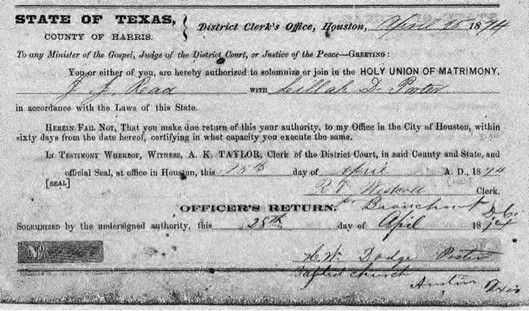 STATE OF TEXAS, District Clerk's Office, Houston, April 15 1874
COUNTY OF HARRIS.
To any Minister of the Gospel, Judge of the District Court, or Justice of the Peace—GREETING:
You or either of you, are hereby authorized to solemnize or join in the HOLY UNION OF MATRIMONY,
J. J. Read WITH D. Porter
in accordance with the Laws of this State.
HEREIN FAIL NOT, That you make due return of this your authority, to my Office in the City of Houston, within
sixty days from the date hereof, certifying in what capacity you execute the same.
IN TESTIMONY WHEREOF, WITNESS, A. K. TAYLOR, Clerk of the District Court, in said County and State, and
official Seal, at office in Houston, this 15th day of April A. D., 1874
[SEAL] Clerk.
OFFICER'S RETURN.
SOLEMNIZED by the undersigned authority, this 25th day of April 1874
H. W. Dodge Pastor
Baptist church
Austin Texas